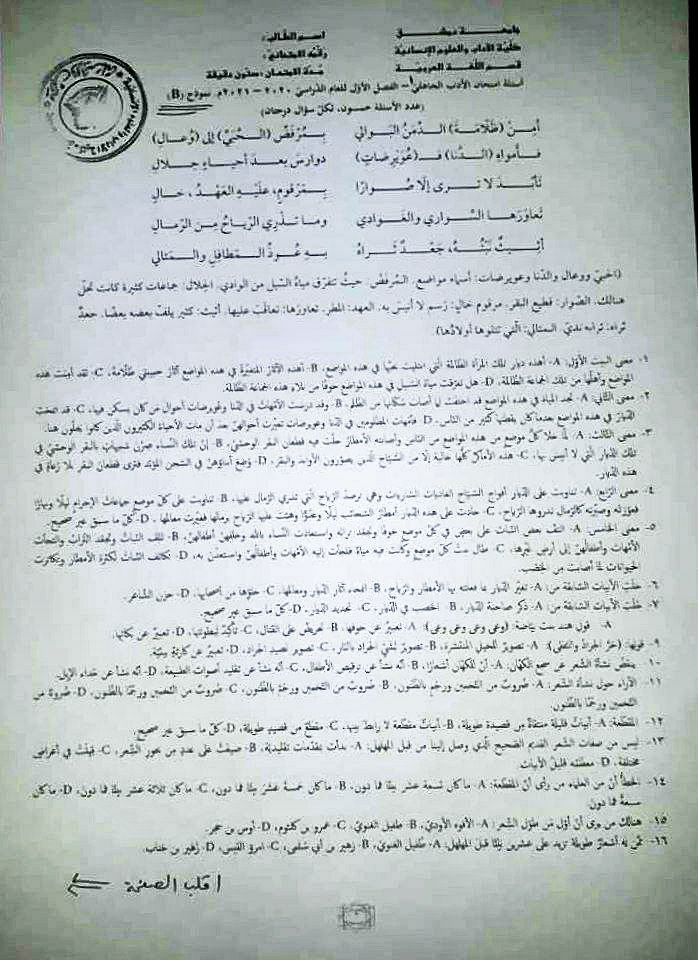 جامعة دمشق
كلية الآداب والعلوم الإنسانية
قسم اللغة العربية
اسم الطالب:
رقمه الامتحاني:
مدة الامتحان: ستون دقيقة
أسئلة امتحان الأدب الجاهلي ١- الفصل الأول للعام الدراسي ٢٠٢٠ – ٢٠٢١م. نموذج (B)
(عدد الأسئلة خمسون، لكل سؤال درجتان)
أمن (ظلامة) الدمن البوالي بمرفض (الحبي) إلى (وعال)
فأمواه (الدنا) فـ(عويرضات) دوارس بعد أحياء حلال
تأبد لا ترى إلا صوارا بمرقوم، عليه العهد، خال
تعاورها السواري والغوادي وما تذري الرياح من الرمال
أثيث نبته، جعد ثراه به عوذ المطافل والمتالي
(الحبي ووعال والدنا وعويرضات: أسماء مواضع. المرفض: حيث تتفرق مياه السيل من الوادي. الحلال: جماعات كثيرة كانت تحل
هنالك. الصوار: قطيع البقر. مرقوم خال: رسم لا أنيس به. العهد: المطر. تعاورها: تعاقبت عليها. أثيث: كثير يلتف بعضه ببعض. جعد
ثراه: ترابه ندي. المتالي: التي تتلوها أولادها)
١- معنى البيت الأول: A- أهذه ديار تلك المرأة الظالمة التي في هذه المواضع، B- أهذه الآثار المتغيرة في هذه المواضع آثار حبيبتي ظلامة، C- لقد أوشت هذه
المواضع وأهلها من تلك الجماعة الظالمة، D- هل تفرقت مياه السيل في هذه المواضع خوفا من بلاء هذه الجماعة الظالمة.
٢- معنى الثاني: A- تجد المياه في هذه المواضع قد اختفت لما أصاب سكانها من الظلم، B- وقد درست الأمهات في الدنا وعويرضات أحوال من كان يسكن فيها، C- قد امحت
الديار في هذه المواضع بعدما كان يقصدها كثير من الناس، D- فأمهات المظلومين في الدنا وعويرضات تغيرت أحوالهن بعد أن مات الأحياء الكثيرون الذين كانوا يحلون هنا.
٣- معنى الثالث: A- لما خلا كل موضع من هذه المواضع من الناس وأصابته الأمطار حلت فيه قطعان البقر الوحشي، B- إن تلك النساء صرن شبيهات بالبقر الوحشي في
تلك الديار التي لا أنيس بها، C- هذه الأماكن كلها خالية إلا من الذين يصورون الأوابد والبقر، D- وضع في السجن المؤبد فترى قطعان البقر بلا رعاة في
هذه الديار.
٤- معنى الرابع: A- تناوبت على الديار أفواج السياح وهي ترصد الرياح التي تذري الرمال عليها، B- تناوبت على كل موضع جماعات الإجرام ليلا ونهارا
وصيرته كالرمال تذروها الرياح، C- على هذه الديار أمطار السحائب ليلا وغدوا وهبت عليها الرياح ومالها فغيرت معالمها، D- كل ما سبق غير صحيح.
٥- معنى الخامس: A- التف بعض النبات على بعض في كل موضع وتجعد ترابه واستعاذت النساء بالله وحلفهن أطفالهن، B- تلك النبات وتجعد التراب والتجأت
الأمهات وأطفالهن إلى أرض غيرها، C- طال نبت كل موضع وكانت فيه مياه فلجأت إليه الأمهات وأطفالهن واستعذن به، D- تكاثف النبات لكثرة الأمطار وتكاثرت
الحيوانات لما أصابت من الخصب.
٦- خلت الأبيات السابقة من: A- تغير الديار بما فعلته بها الأمطار والرياح، B- امحاء آثار الديار ومعالمها، C- خلوها من أصحابها، D- حزن الشاعر.
٧- خلت الأبيات السابقة من: A- ذكر صاحبة الديار، B- الخصب في الديار، C- تحديد الديار، D- كل ما سبق غير صحيح.
A قول هند بنت بياضة: (وغى وغى وغى وغى): A- تعبير عن خوفها، B- تحريض على القتال، C- تأكيد لبطولتها، D- تعبير عن بكائها.
٩- قولها: (حر الجراد والتظى): A- تصوير للخيل المنتشرة، B- تصوير لشي الجراد بالنار، C- تصوير لصيد الجراد، D- تعبير عن كارثة بيئية.
١٠- ينقض نشأة الشعر عن سجع الكهان: A- أن للكهان أشعارا، B- أنه نشأ عن ترقيص الأطفال، C- أنه نشأ عن تقليد أصوات الطبيعة، D- أنه نشأ عن حداء الإبل.
١١- الآراء حول نشأة الشعر: A- ضروب من التخمين ورجم بالظنون، B- ضروب من التخمين ورجمة بالظنون، C- ضروب من التخمين ورجما بالظنون، D- ضروبا من
التخمين ورجما بالظنون.
١٢- المقطعة: A- أبيات قليلة منتقاة من قصيدة طويلة، B- أبيات متقطعة لا رابط بينها، C- مقطع من قصيدة طويلة، D- كل ما سبق غير صحيح.
١٣- ليس من صفات الشعر القديم الصحيح الذي وصل إلينا من قبل المهلهل: A- بدأت بمقدمات تقليدية، B- صيغت على عدد من بحور الشعر، C- قيلت في أغراض
مختلفة، D- معظمه قليل الأبيات.
١٤- الخطأ أن من العلماء من رأى أن المقطعة: A- ما كان تسعة عشر بيتا فما دون، B- ما كان خمسة عشر بيتا فما دون، C- ما كان ثلاثة عشر بيتا فما دون، D- ما كان
سبعة فما دون.
١٥- هنالك من يرى أن أول من طول الشعر: A- الأفوه الأودي، B- طفيل الغنوي، C- عمرو بن كلثوم، D- أوس بن حجر.
١٦- ممن له أشعار طويلة تزيد على عشرين بيتا قبل المهلهل: A- طفيل الغنوي، B- زهير بن أبي سلمى، C- امرؤ القيس، D- زهير بن جناب.
اقلب الصفحة